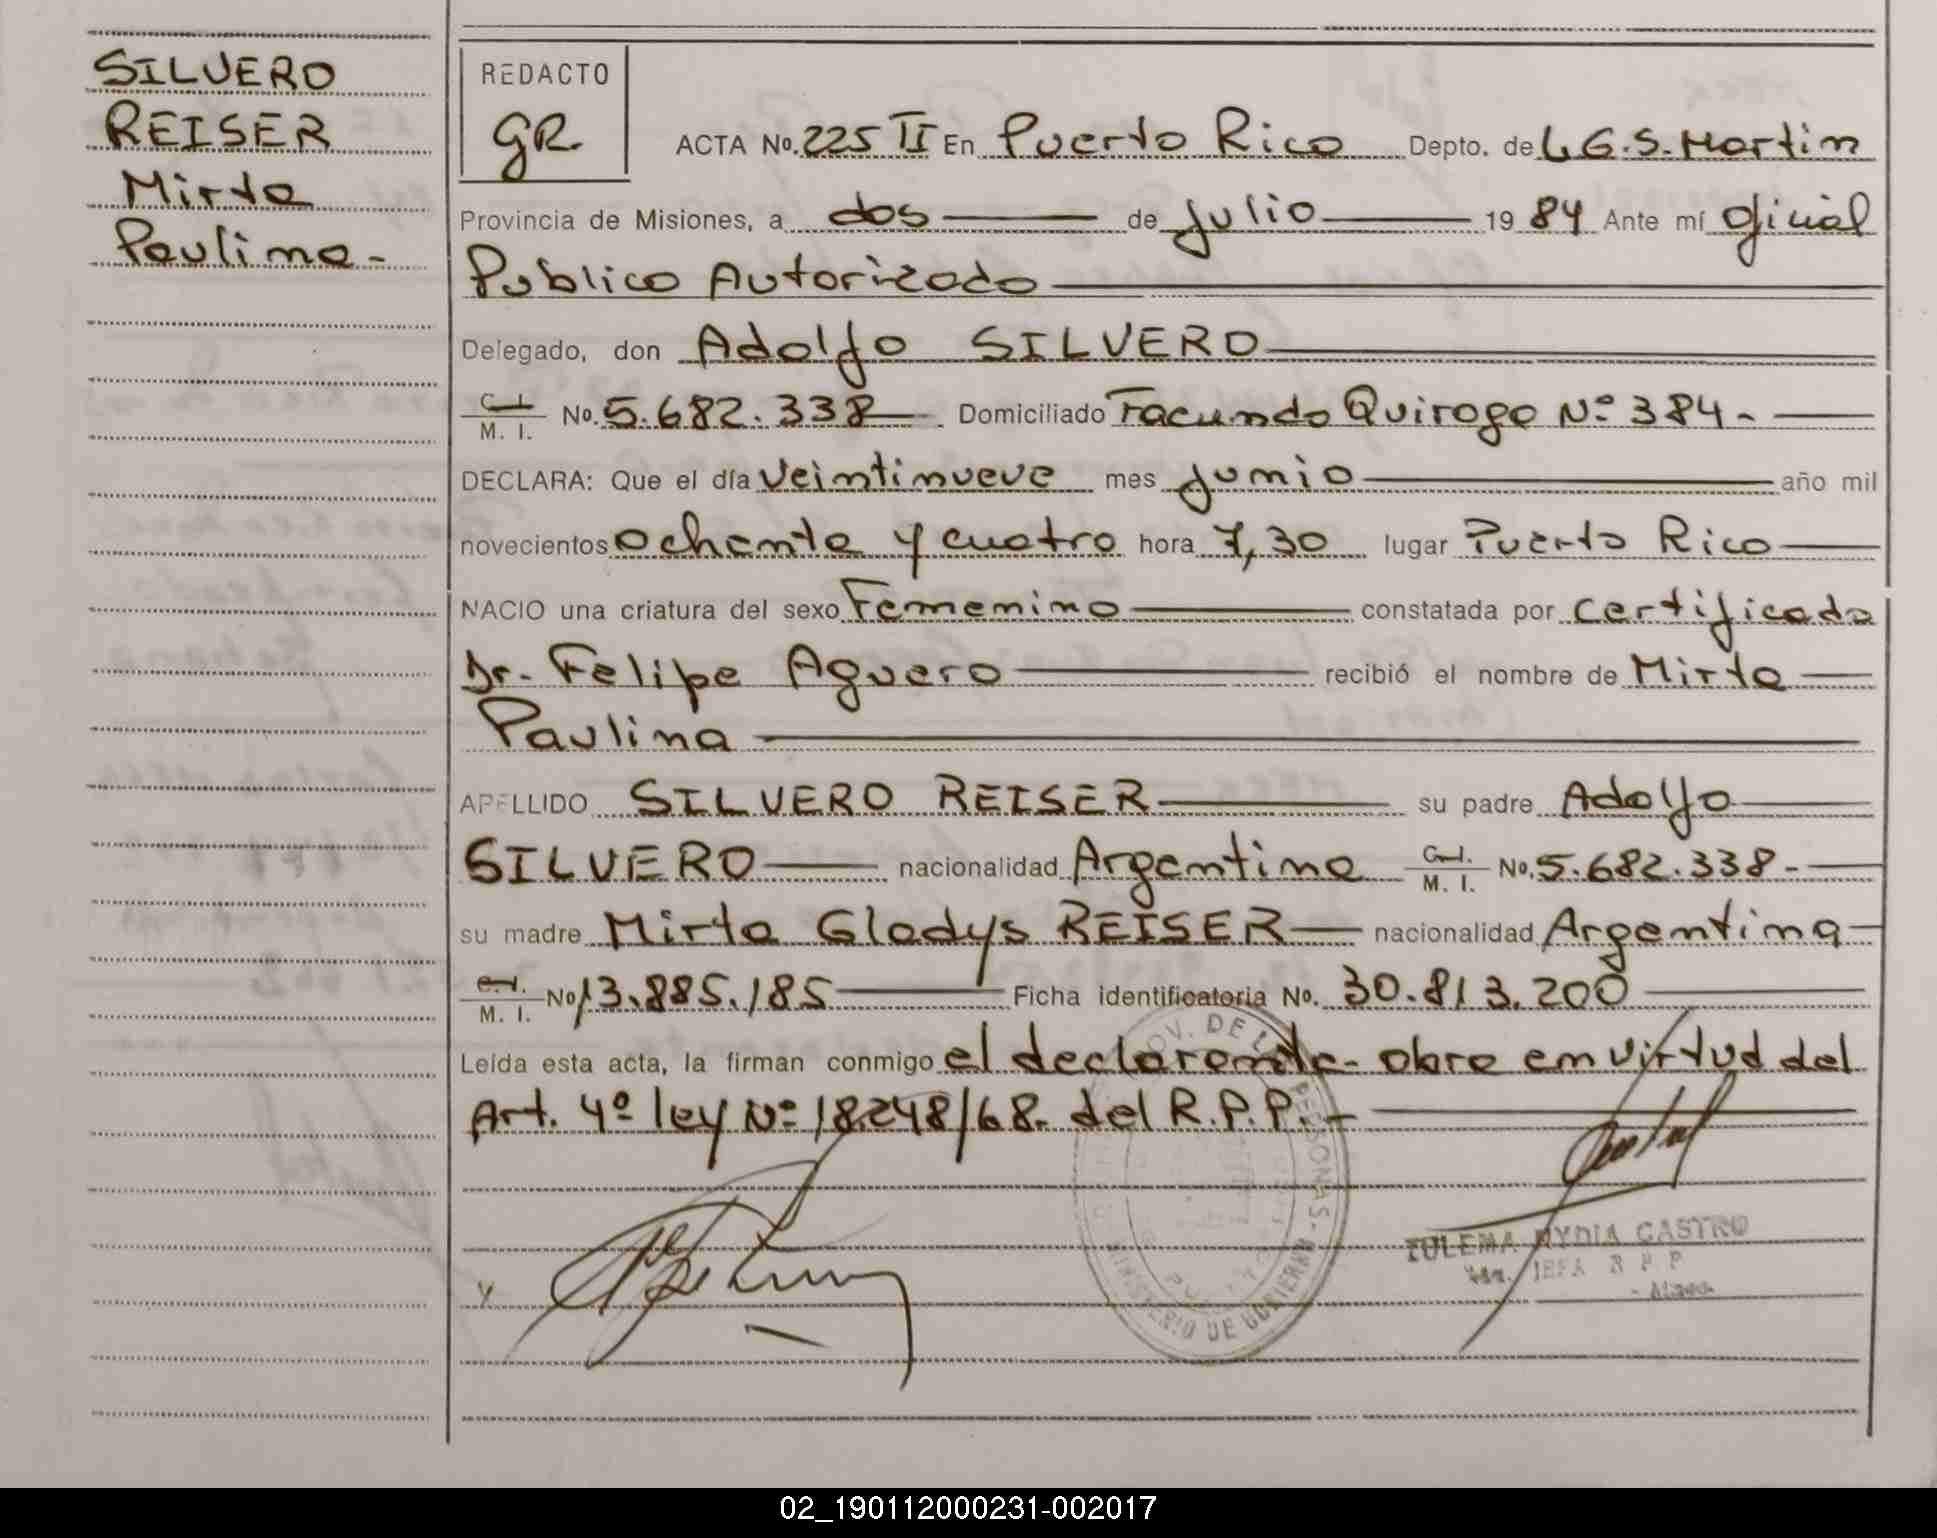 SILVERO
REISER
Mirta
Paulina-
REDACTO
GR.
ACTA No. 225 II En Puerto Rico Depto. de L G. S. Martin
Provincia de Misiones, a dos de Julio 1984 Ante mí Oficial
Publico Autorizado
Delegado, don Adolfo SILVERO
C. I.
M. I. No. 5.682.338 Domiciliado Facundo Quiroga Nº 384-
DECLARA: Que el día Veintinueve mes Junio año mil
novecientos Ochenta y cuatro hora 7,30 lugar Puerto Rico
NACIO una criatura del sexo Femenino constatada por certificado
Dr. Felipe Aguero recibió el nombre de Mirta
Paulina
APELLIDO SILVERO REISER su padre Adolfo
SILVERO nacionalidad Argentina C. I.
M. I. No. 5.682.338-
su madre Mirta Gladys REISER nacionalidad Argentina
C. I.
M. I. No 13.885.185 Ficha identificatoria No. 30.813.200
Leída esta acta, la firman conmigo el declarante- obra en virtud del
Art. 4º ley Nº 18.248/68. del R.P.P.-
PERSONAS-
MINISTERIO DE GOBIERNO
NYDIA CASTRO
JEFA R P P
02_190112000231-002017